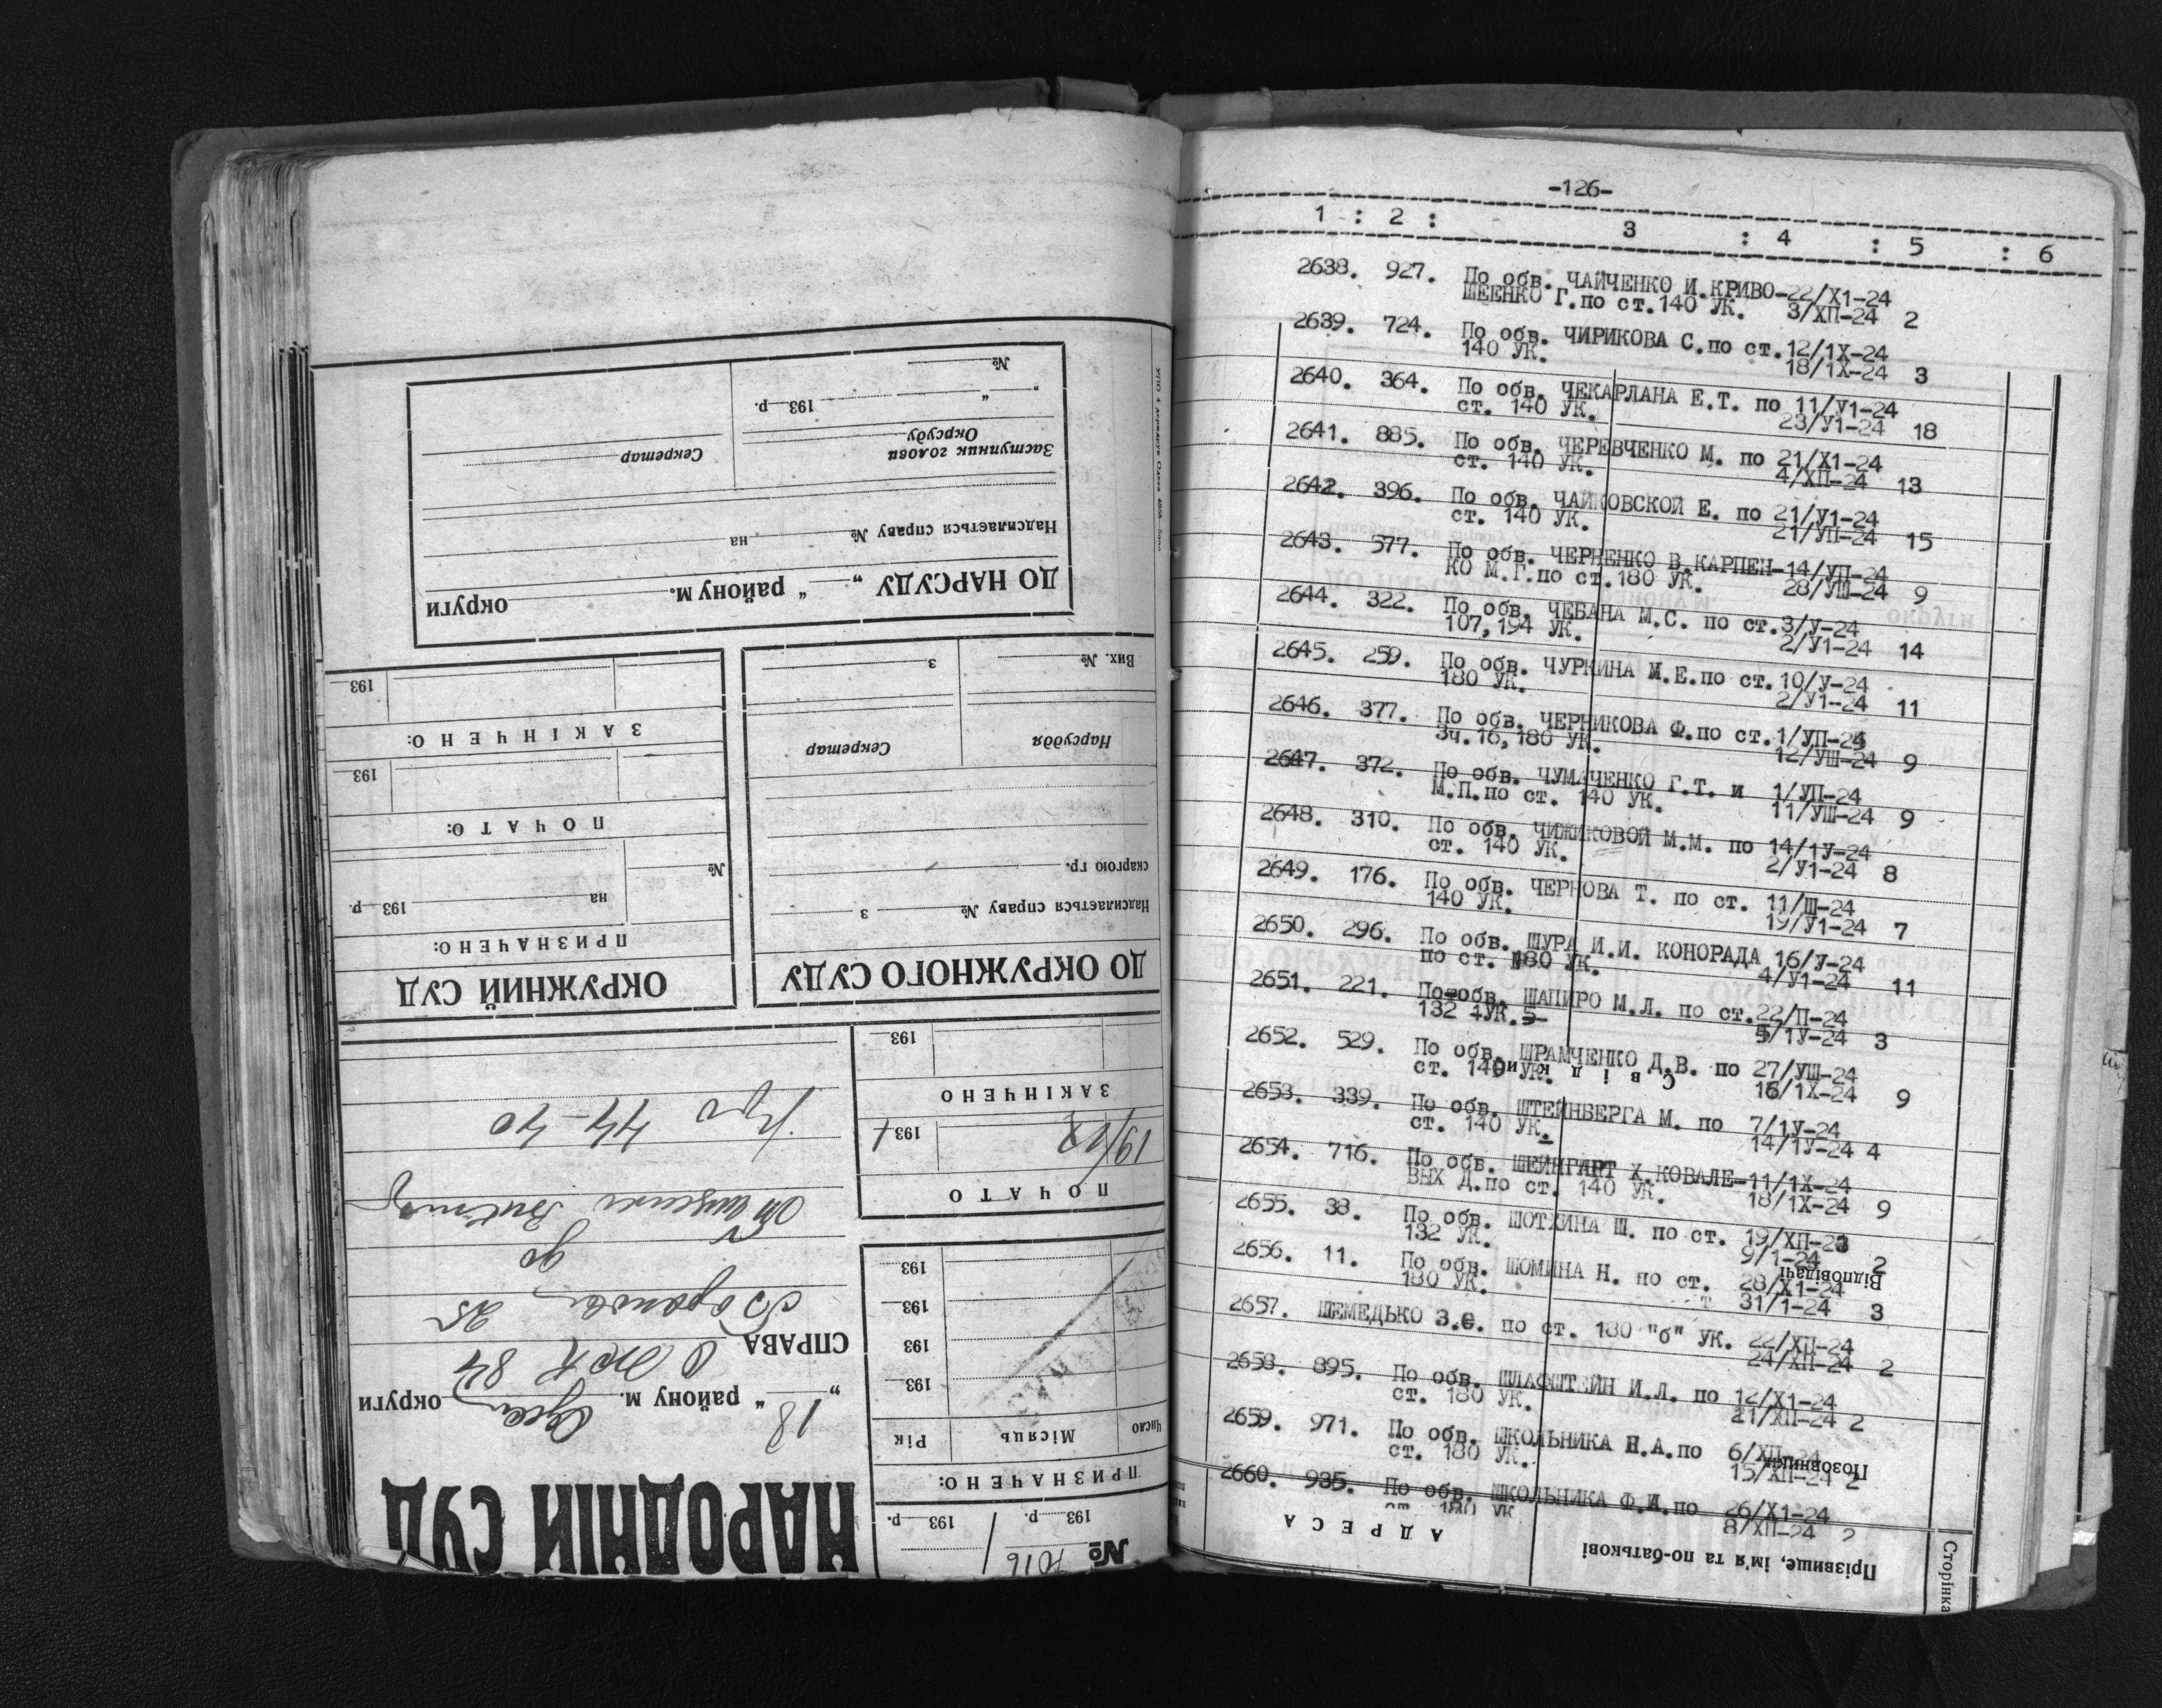 -126-
1 : 2 : 3 : 4 : 5 : 6
2638. 927. По обв. ЧАЙЧЕНКО И.КРИВО-22/Х1-24
ШЕЕНКО Г.по ст.140 УК. 3/ХП-24 2
2639. 724. По обв. ЧИРИКОВА С.по ст.12/1Х-24
140 УК. 18/1Х-24 3
2640. 364. По обв. ЧЕКАРЛАНА Е.Т. по 11/У1-24
ст. 140 УК. 23/У1-24 18
2641. 885. По обв. ЧЕРЕВЧЕНКО М. по 21/Х1-24
ст. 140 УК. 4/ХП-24 13
2642. 396. По обв. ЧАЙКОВСКОЙ Е. по 21/У1-24
ст. 140 УК. 21/УП-24 15
2643. 577. По обв. ЧЕРНЕНКО В.КАРПЕН-14/УП-24
КО М.Г.по ст.180 УК. 28/УШ-24 9
2644. 322. По обв. ЧЕБАНА М.С. по ст.3/У-24
107,194 УК. 2/У1-24 14
2645. 259. По обв. ЧУРКИНА М.Е.по ст.10/У-24
180 УК. 2/У1-24 11
2646. 377. По обв. ЧЕРНИКОВА Ф.по ст.1/УП-24
3ч.16,180 УК. 12/УШ-24 9
2647. 372. По обв. ЧУМАЧЕНКО Г.Т. и 1/УП-24
М.П.по ст. 140 УК. 11/УШ-24 9
2648. 310. По обв. ЧИЖИКОВОЙ М.М. по 14/1У-24
ст. 140 УК. 2/У1-24 8
2649. 176. По обв. ЧЕРНОВА Т. по ст. 11/Ш-24
140 УК. 19/У1-24 7
2650. 296. По обв. ШУРА И.И. КОНОРАДА 16/У-24
по ст. 180 УК. 4/У1-24 11
2651. 221. По обв. ШАПИРО М.Л. по ст.22/П-24
132 УК. 5/1У-24 3
2652. 529. По обв. ШРАМЧЕНКО Д.В. по 27/УШ-24
ст. 140 УК. 16/1Х-24 9
2653. 339. По обв. ШТЕЙНБЕРГА М. по 7/1У-24
ст. 140 УК. 14/1У-24 4
2654. 716. По обв. ШЕЙНГАРТ Х.КОВАЛЕ-11/1Х-24
ВЫХ Д.по ст. 140 УК. 18/1Х-24 9
2655. 38. По обв. ШОТХИНА Ш. по ст. 19/ХП-23
132 УК. 9/1-24 2
2656. 11. По обв. ШОМИНА Н. по ст. 28/Х1-24
180 УК. 31/1-24 3
2657. ШЕМЕДЬКО З.С. по ст. 180 "б" УК. 22/ХП-24
24/ХП-24 2
2658. 895. По обв. ШЛАФШТЕЙН И.Л. по 12/Х1-24
ст. 180 УК. 21/ХП-24 2
2659. 971. По обв. ШКОЛЬНИКА Н.А.по 6/ХП-24
ст. 180 УК. 15/ХП-24 2
2660. 935. По обв. ШКОЛЬНИКА Ф.И.по 26/Х1-24
ст. 180 УК 8/ХП-24 2
Сторінка
Прізвище, ім'я та по-батькові
АДРЕСА
Позовники
Відповідачі
Свідки
№ 7016
193 р. 193 р.
ПРИЗНАЧЕНО:
Число Місяць Рік
193
193
193
193
ПОЧАТО
193
ЗАКІНЧЕНО
193
НАРОДНІЙ СУД
18 " району м. округи
СПРАВА
ДО ОКРУЖНОГО СУДУ
Надсилається справу № з
скаргою гр.
Нарсуддя Секретар
Вих. № з
ОКРУЖНИЙ СУД
ПРИЗНАЧЕНО:
№ на 193 р.
ПОЧАТО:
193
ЗАКІНЧЕНО:
193
ДО НАРСУДУ „ " району м. округи
Надсилається справу № на
Заступник голови
Окрсуду
Секретар
„ " 193 р.
№